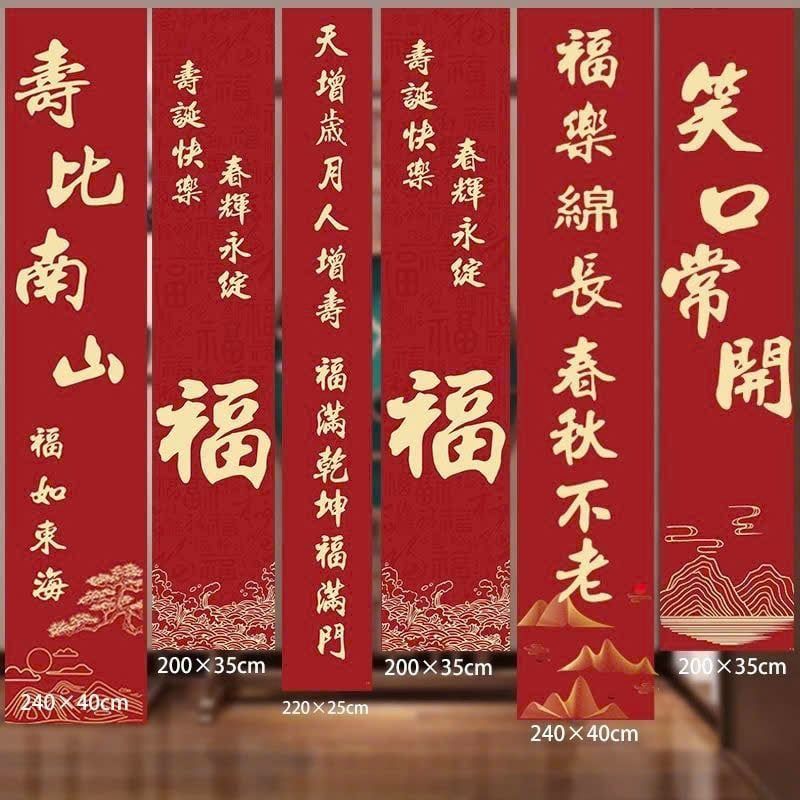 壽比南山
福如東海
240×40cm
壽誕快樂
春輝永綻
福
200×35cm
天增歲月人增壽 福滿乾坤福滿門
220×25cm
壽誕快樂
春輝永綻
福
200×35cm
福樂綿長春秋不老
240×40cm
笑口常開
200×35cm